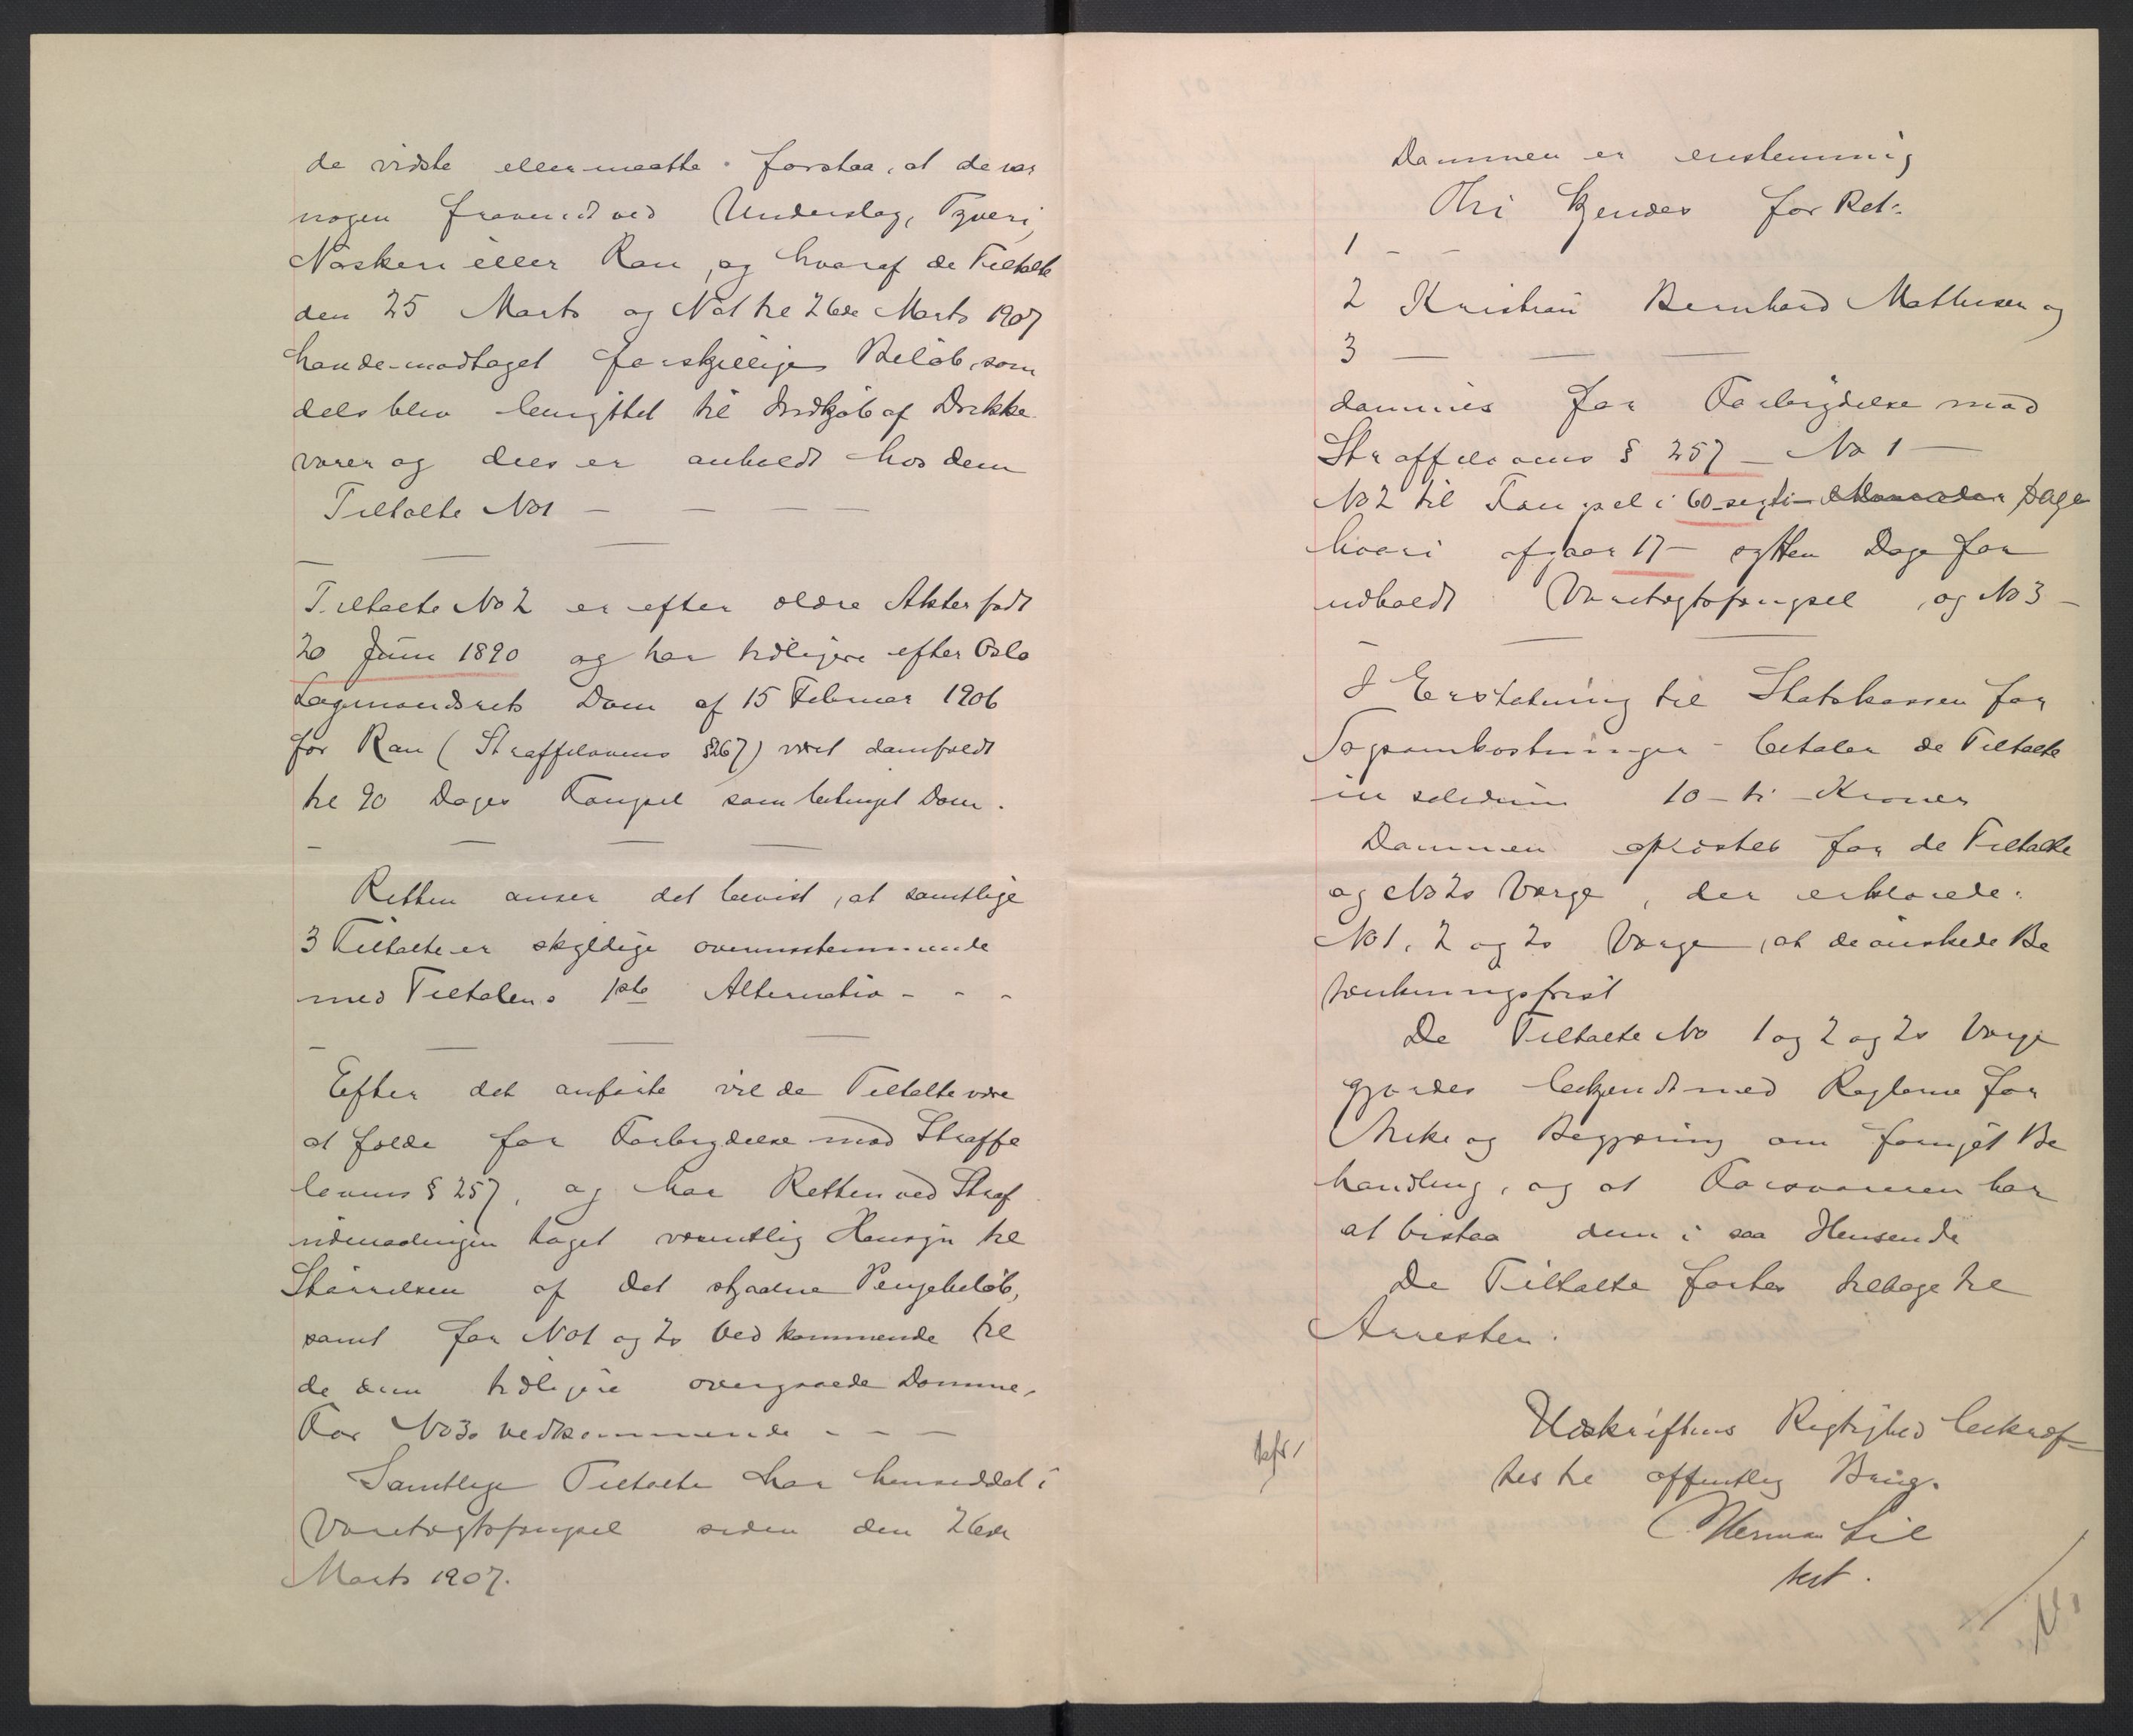 de vidste eller maatte forstaa, at de var
nogen fravendt ved Underslag, Tyveri,
Naskeri eller Ran, og hvoraf de Tiltalte
den 25 Marts og Nat til 26de Marts 1907
havde modtaget forskjellige Beløb, som
dels blev benyttet til Indkjøb af Drikke-
varer og dels er anholdt hos dem
Tiltalte No 1 — — — —
Tiltalte No 2 er efter ældre Akter født
20 Juni 1890 og har tidligere efter Oslo
Lagmandsrets Dom af 15 Februar 1906
for Ran (Straffelovens § 267) været domfældt
til 90 Dages Fængsel som betinget Dom.
— — — —
Retten anser det bevist, at samtlige
3 Tiltalte er skyldige overensstemmende
med Tiltalens 1ste Alternativ - - -
— — — —
Efter det anførte vil de Tiltalte være
at fælde for Forbrydelse mod Straffe
lovens § 257, og har Retten ved Straf
udmaalingen taget væsentlig Hensyn til
Størrelsen af det stjaalne Pengebeløb,
samt for No 1 og 2s Vedkommende til
de dem tidligere overgaaede Domme.
For No 3s vedkommende - - —
Samtlige Tiltalte har hensiddet i
Varetægtsfængsel siden den 26de
Marts 1907.
Dommen er enstemmig
Thi kjendes for Ret:
1 - -
2 Kristian Bernhard Mathisen og
3 — — —
dømmes for Forbrydelse mod
Straffelovens § 257 — No 1 —
No 2 til Fængsel i 60 - segsti - Maaneder Dage
hvori afgaar 17 — sytten Dage for
udholdt Varetægtsfængsel, og No 3 —
— — —
I Erstatning til Statskassen for
Sagsomkostninger betaler de Tiltalte
in solidum 10 - ti - Kroner
Dommen oplæstes for de Tiltalte
og No 2s Værge, der erklærede:
No 1, 2 og 2s Værge, at de ønskede Be
tænkningsfrist
De Tiltalte No 1 og 2 og 2s Værge
gjordes bekjendt med Reglerne for
Anke og Begjæring om fornyet Be
handling, og at Forsvareren har
at bistaa dem i saa Henseende
De Tiltalte førtes tilbage til
Arresten.
Udskriftens Rigtighed bekræf-
tes til offentlig Brug.
Herman Lie
kst.